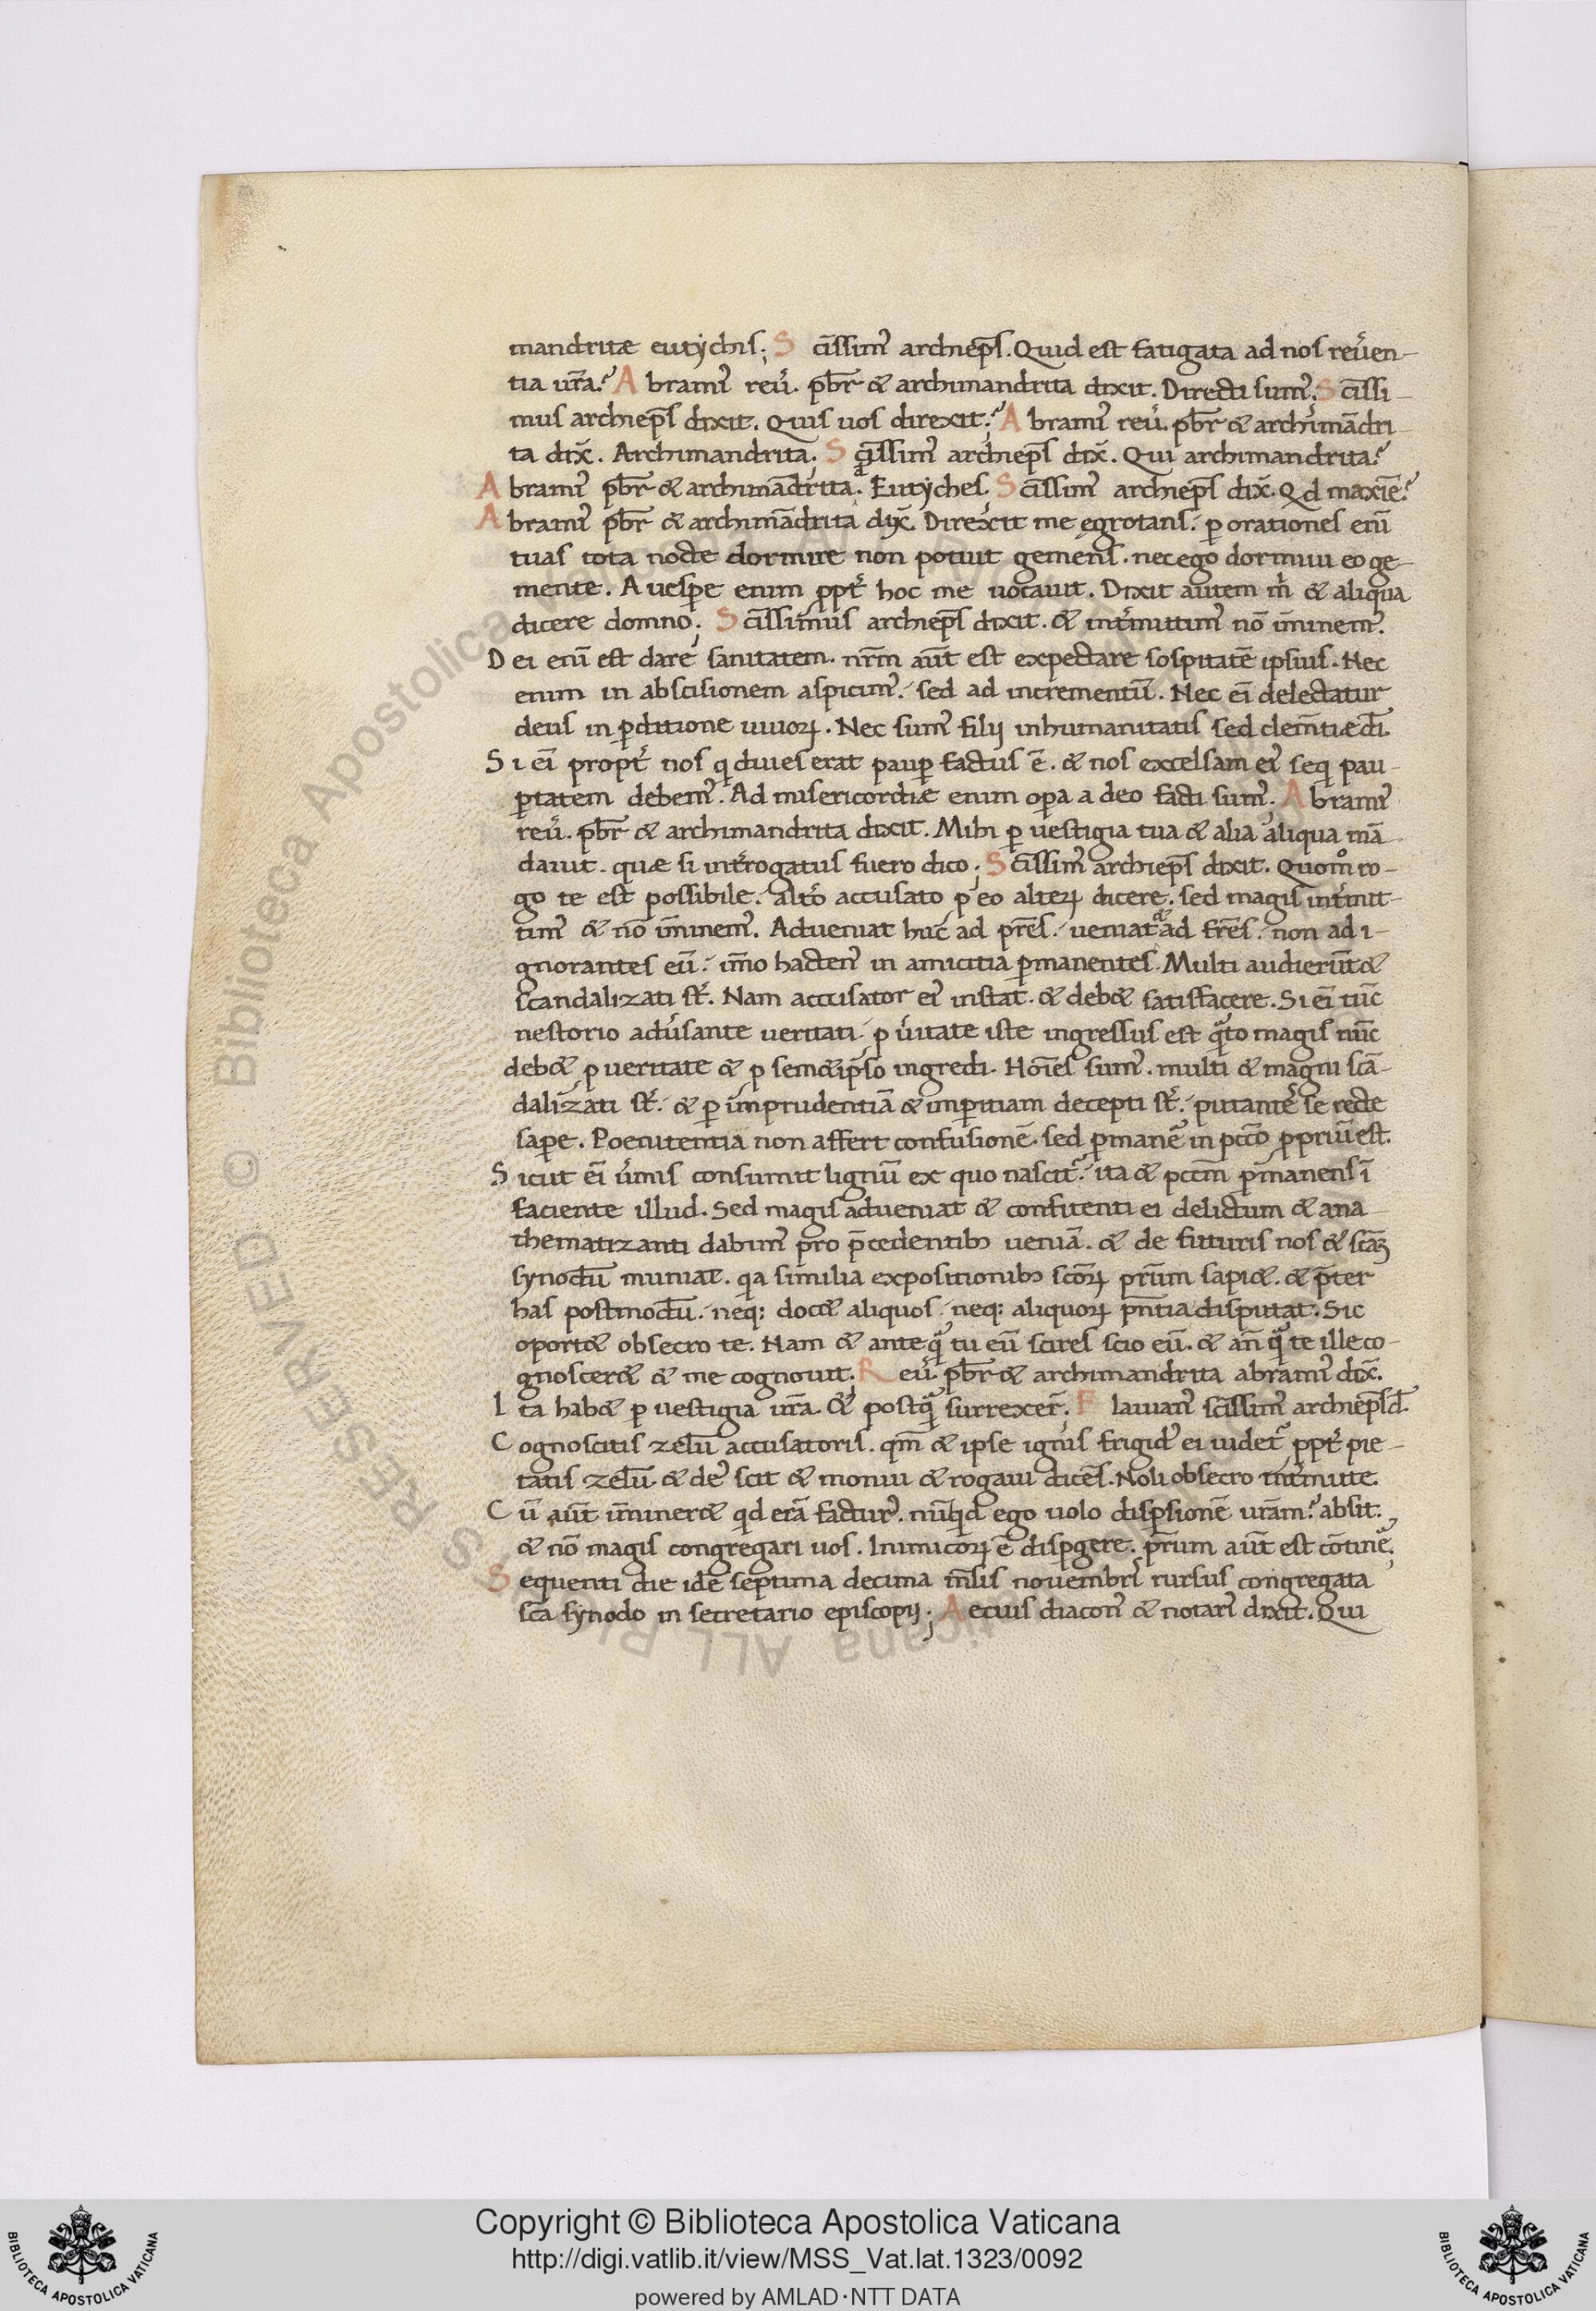 mandritæ eutychis; S c̅issim᾽ archiep̅s. Quid est fatigata ad nos reu̅en-
tia ur̅a? A bram᾽ reu̅. pb̅r & archimandrita dixit. Directi sum᾽; S c̅issi-
mus archiep̅s dixit. Quis uos direxit? A bram᾽ reu̅. pb̅r & archima̅dri-
ta dix̅. Archimandrita; S c̅issim᾽ archiep̅s dix̅. Qui archimandrita?
A bram᾽ pb̅r & archima̅drita. Eutyches. S c̅issim᾽ archiep̅s dix̅. Qd maxi̅e?
A bram᾽ pb̅r & archima̅drita dix̅. Direxit me ęgrotans. ꝑ orationes eni̅
tuas tota nocte dormire non potuit gemens. nec ego dormiui eo ge-
mente. A uesꝑe enim ꝓpt᾽ hoc me uocauit. Dixit autem m̅ & aliqua
dicere domno; S c̅issimus archiep̅s dixit. & int᾽mittim᾽ no̅ i̅minem᾽.
D ei eni̅ est dare sanitatem. nr̅m au̅t est expectare sospitate̅ ipsius. Nec
enim in abscisionem aspicim᾽. sed ad incrementu̅. Nec ei̅ delectatur
deus in ꝑditione uiuoꝝ. Nec sum᾽ filij inhumanitatis sed clem̅tiæ di̅.
S i ei̅ propt᾽ nos q diues erat pauꝑ factus e̅. & nos excelsam ei᾽ seq pau-
ꝑtatem debem᾽. Ad misericordiæ enim oꝑa a deo facti sum᾽. A bram᾽
reu̅. pb̅r & archimandrita dixit. Mihi ꝑ uestigia tua & alia aliqua ma̅-
dauit. quæ si int᾽rogatus fuero dico; S c̅issim᾽ archiep̅s dixit. Quomº ro-
go te est possibile. alt᾽o accusato ꝓ eo alteꝝ dicere. sed magis int᾽mit-
tim᾽ & no̅ i̅minem᾽. Adueniat huc ad pr̅es. ueniat & ad fr̅es. non ad i-
gnorantes eu̅. i̅mo hacten᾽ in amicitia ꝑmanentes. Multi audieru̅t &
scandalizati st᾽. Nam accusator ei᾽ instat. & deb& satisfacere. Si ei̅ tu̅c
nestorio adu᾽sante ueritati. ꝓ u᾽itate iste ingressus est qᵃto magis nu̅c
deb& ꝓ ueritate & ꝓ sem&ip̅so ingredi. Ho̅ies sum᾽. multi & magni sca̅-
dalizati st᾽. & ꝑ imprudentia̅ & imꝑitiam decepti st᾽. putante᾽ se recte
saꝑe. Poenitentia non affert confusione̅. sed ꝑmane᾽ in pcc̅o ꝓpriu̅ est.
S icut ei̅ u᾽mis consumit lignu̅ ex quo nascit᾽. ita & pcc̅m ꝑmanens i̅
faciente illud. Sed magis adueniat & confitenti ei delictum & ana-
thematizanti dabim᾽ pro p̅cedentib; uenia̅. & de futuris nos & sca̅ꝫ
synodu̅ muniat. qa similia expositionib; sc̅oꝝ pr̅um sapi&. & p̅ter
has postmodu̅. neq: doc& aliquos. neq: aliquoꝝ pn̅tia disputat. Sic
oport& obsecro te. Nam & ante qᵃ tu eu̅ scires scio eu̅. & an̅ qᵃ te ille co-
gnoscer& & me cognouit; R eu̅. pb̅r & archimandrita abram᾽ dix̅.
I ta hab& ꝑ uestigia ur̅a. & postqᵃ surrexer̅; F lauian᾽ sc̅issim᾽ archiep̅s d̅.
C ognoscitis zelu̅ accusatoris. qm̅ & ipse ignis frigid᾽ ei uidet᾽ ꝓpt᾽ pie-
tatis zelu̅ & de᾽ scit & monui & rogaui dice̅s. Noli obsecro int᾽mitte.
C u̅ au̅t i̅miner& qd era̅ factur᾽. nu̅qd ego uolo disꝑsione̅ ur̅am? absit.
& no̅ magis congregari uos. Inimicoꝝ e̅ disꝑgere. pr̅um au̅t est co̅tine᾽;
S equenti die ide̅ septima decima m̅sis nouembr᾽ rursus congregata
sc̅a synodo in secretario episcopij; A etius diacon᾽ & notari᾽ dixit. Qui
© Biblioteca Apostolica Vaticana ALL RIGHTS RESERVED
Copyright © Biblioteca Apostolica Vaticana
http://digi.vatlib.it/view/MSS_Vat.lat.1323/0092
powered by AMLAD·NTT DATA
BIBLIOTECA APOSTOLICA VATICANA
BIBLIOTECA APOSTOLICA VATICANA